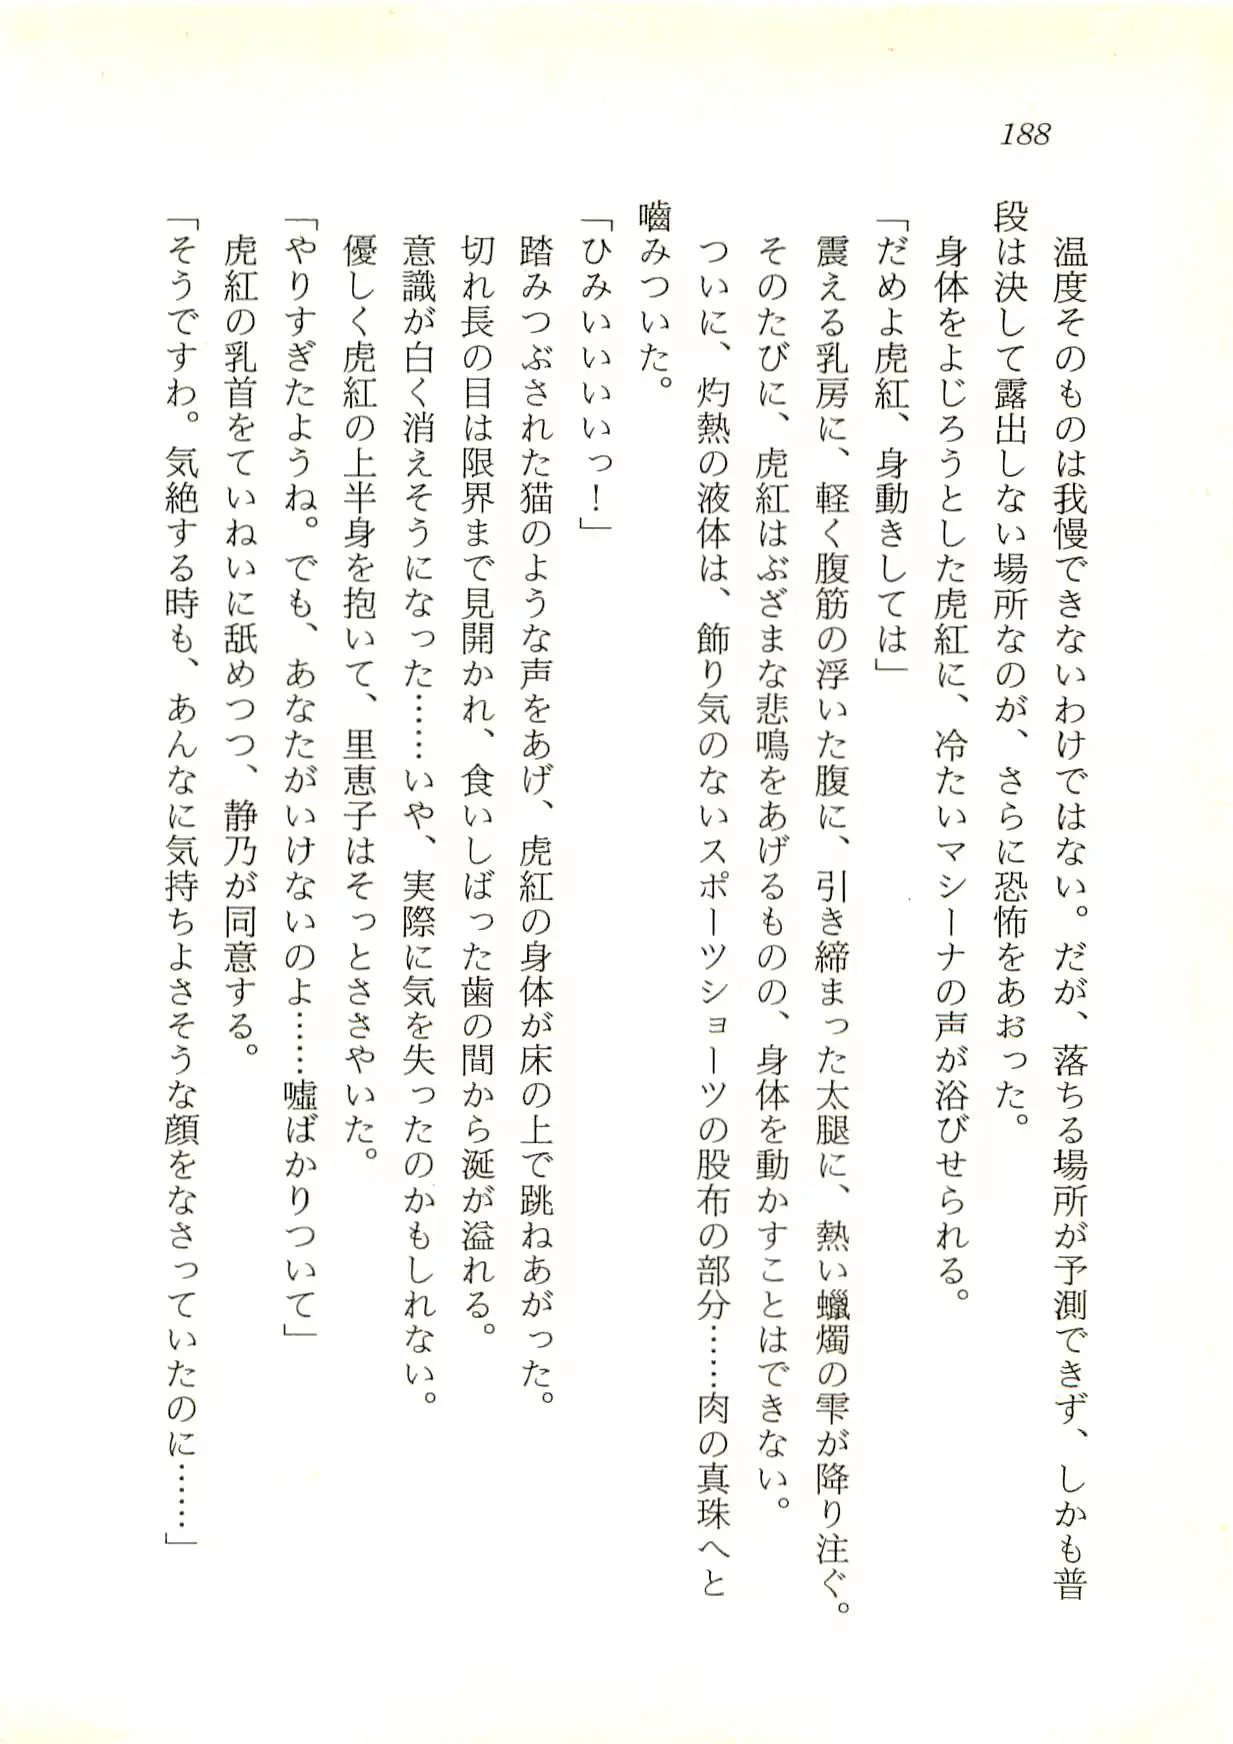 188
温度そのものは我慢できないわけではない。だが、落ちる場所が予測できず、しかも普
段は決して露出しない場所なのが、さらに恐怖をあおった。
身体をよじろうとした虎紅に、冷たいマシーナの声が浴びせられる。
「だめよ虎紅、身動きしては」
震える乳房に、軽く腹筋の浮いた腹に、引き締まった太腿に、熱い蠟燭の雫が降り注ぐ。
そのたびに、虎紅はぶざまな悲鳴をあげるものの、身体を動かすことはできない。
ついに、灼熱の液体は、飾り気のないスポーツショーツの股布の部分……肉の真珠へと
嚙みついた。
「ひみいいいいっ！」
踏みつぶされた猫のような声をあげ、虎紅の身体が床の上で跳ねあがった。
切れ長の目は限界まで見開かれ、食いしばった歯の間から涎が溢れる。
意識が白く消えそうになった……いや、実際に気を失ったのかもしれない。
優しく虎紅の上半身を抱いて、里恵子はそっとささやいた。
「やりすぎたようね。でも、あなたがいけないのよ……嘘ばかりついて」
虎紅の乳首をていねいに舐めつつ、静乃が同意する。
「そうですわ。気絶する時も、あんなに気持ちよさそうな顔をなさっていたのに……」